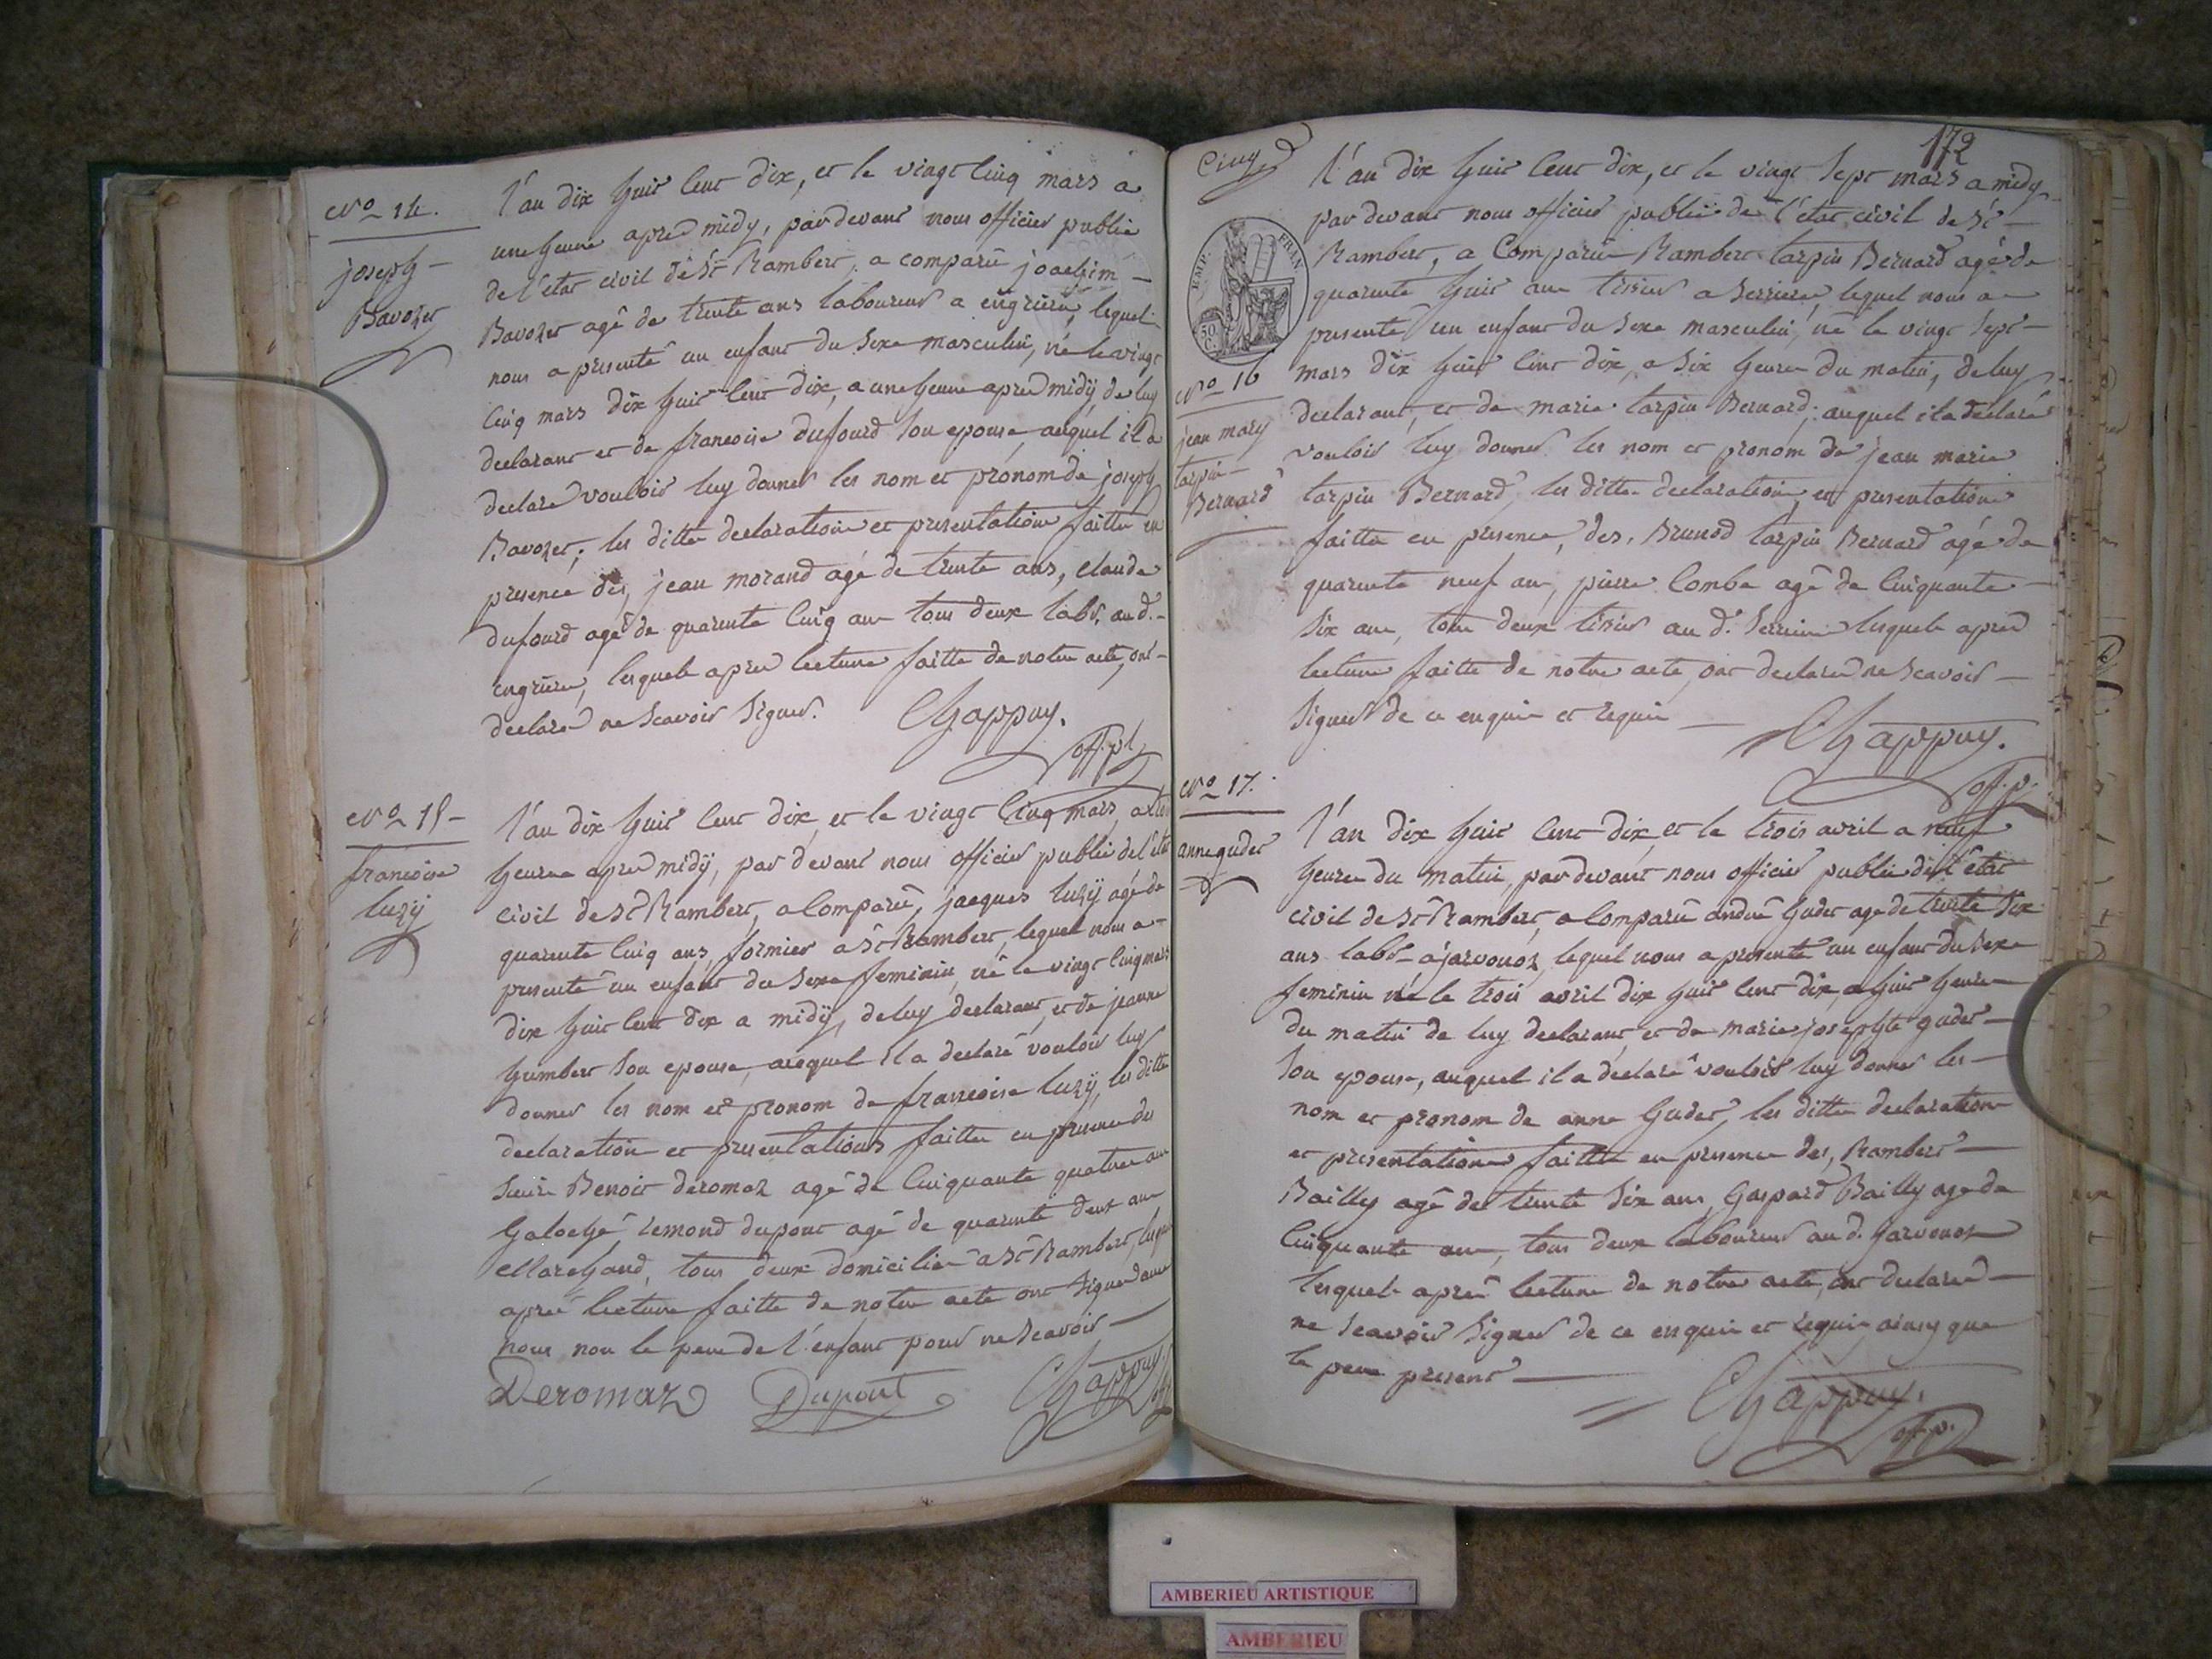 N.o 14.
joseph
Bavozet
L'an dix huit cent dix, et le vingt cinq mars a
une heure apres midy, par devant nous officier public
de l'état civil de St Rambert, a comparû joachim
Bavozet agé de trente ans laboureur a engriere, lequel
nous a presenté un enfant du sexe masculin, né le vingt
cinq mars dix huit cent dix, a une heure apres midÿ, de luy
declarant et de francoise dufourd son epouse, auquel il a
declaré vouloir luy donner les nom et prénom de joseph
Bavozet; les dittes declaration et presentation faittes en
presence des, jean morand agé de trente ans, claude
dufourd agé de quarente cinq ans tous deux labr. au d.
engriere, lesquels apres lecture faitte de notre acte, ont
declaré ne scavoir signer. Chappuy.
off. pl
N.o 15
francoise
luzÿ
L'an dix huit cent dix, et le vingt cinq mars, a
heures apres midÿ, par devant nous officier public de l'état
civil de St Rambert, a comparû, jacques luzÿ agé de
quarente cinq ans, fornier a St Rambert, lequel nous a
presenté un enfant du sexe feminin, né le vingt cinq mars
dix huit cent dix a midÿ, de luy declarant, et de jeanne
humbert son epouse, auquel il a declaré vouloir luy
donner les nom et pronom de francoise luzÿ, les dittes
declaration et presentations faittes en presence du
sieur Benoit deromaz agé de cinquante quatre ans
galoché, remond dupont agé de quarente deux ans
Marchand, tous deux domicilies a St Rambert,
apres lecture faitte de notre acte ont signe avec
nous non le pere de l'enfant pour ne scavoir
Deromaz Dupont Chappuy.
172
Cinq
EMP. FRAN.
50 C.
N.o 16
jean mary
tarpin
Bernard
L'an dix huit cent dix, et le vingt sept mars a midy
par devant nous officier public de l'état civil de St
Rambert, a comparû Rambert tarpin Bernard agé de
quarente huit ans tissier a serrieres, lequel nous a
presenté un enfant du sexe masculin, né le vingt sept
mars dix huit cent dix, a six heures du matin, de luy
declarant, et de marie tarpin Bernard; auquel il a declaré
vouloir luy donner les nom et pronom de jean marie
tarpin Bernard, les dittes declaration et presentation
faittes en presence, des, Brunod tarpin Bernard agé de
quarente neuf ans, pierre Combe agé de cinquante
six ans, tous deux tissier au d. serriere lesquels apres
lecture faitte de notre acte, ont declaré ne scavoir
signer de ce enquis et requis Chappuy.
off. p.
N.o 17.
anne guder
L'an dix huit cent dix, et le trois avril a neuf
heures du matin, par devant nous officier public de l'état
civil de St Rambert, a comparû andré guder agé de trente six
ans labr a jarvonoz, lequel nous a presenté un enfant du sexe
feminin né le trois avril dix huit cent dix, a huit heures
du matin de luy declarant, et de marie josephte guder
son epouse, auquel il a déclaré vouloir luy donner les
nom et pronom de anne Guder, les dittes declaration
et presentation faittes en presence des, Rambert
Bailly agé de trente six ans, Gaspard Bailly agé de
cinquante ans, tous deux laboureur au d. jarvonoz
lesquels aprés lecture de notre acte, ont declaré
ne scavoir signer de ce enquis et requis ainsy que
le pere present
Chappuy.
off. p.
AMBERIEU ARTISTIQUE
AMBERIEU